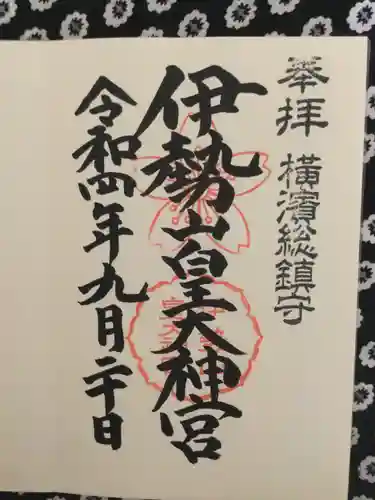 奉拝 横濱総鎮守
伊勢山皇大神宮
令和四年九月二十日